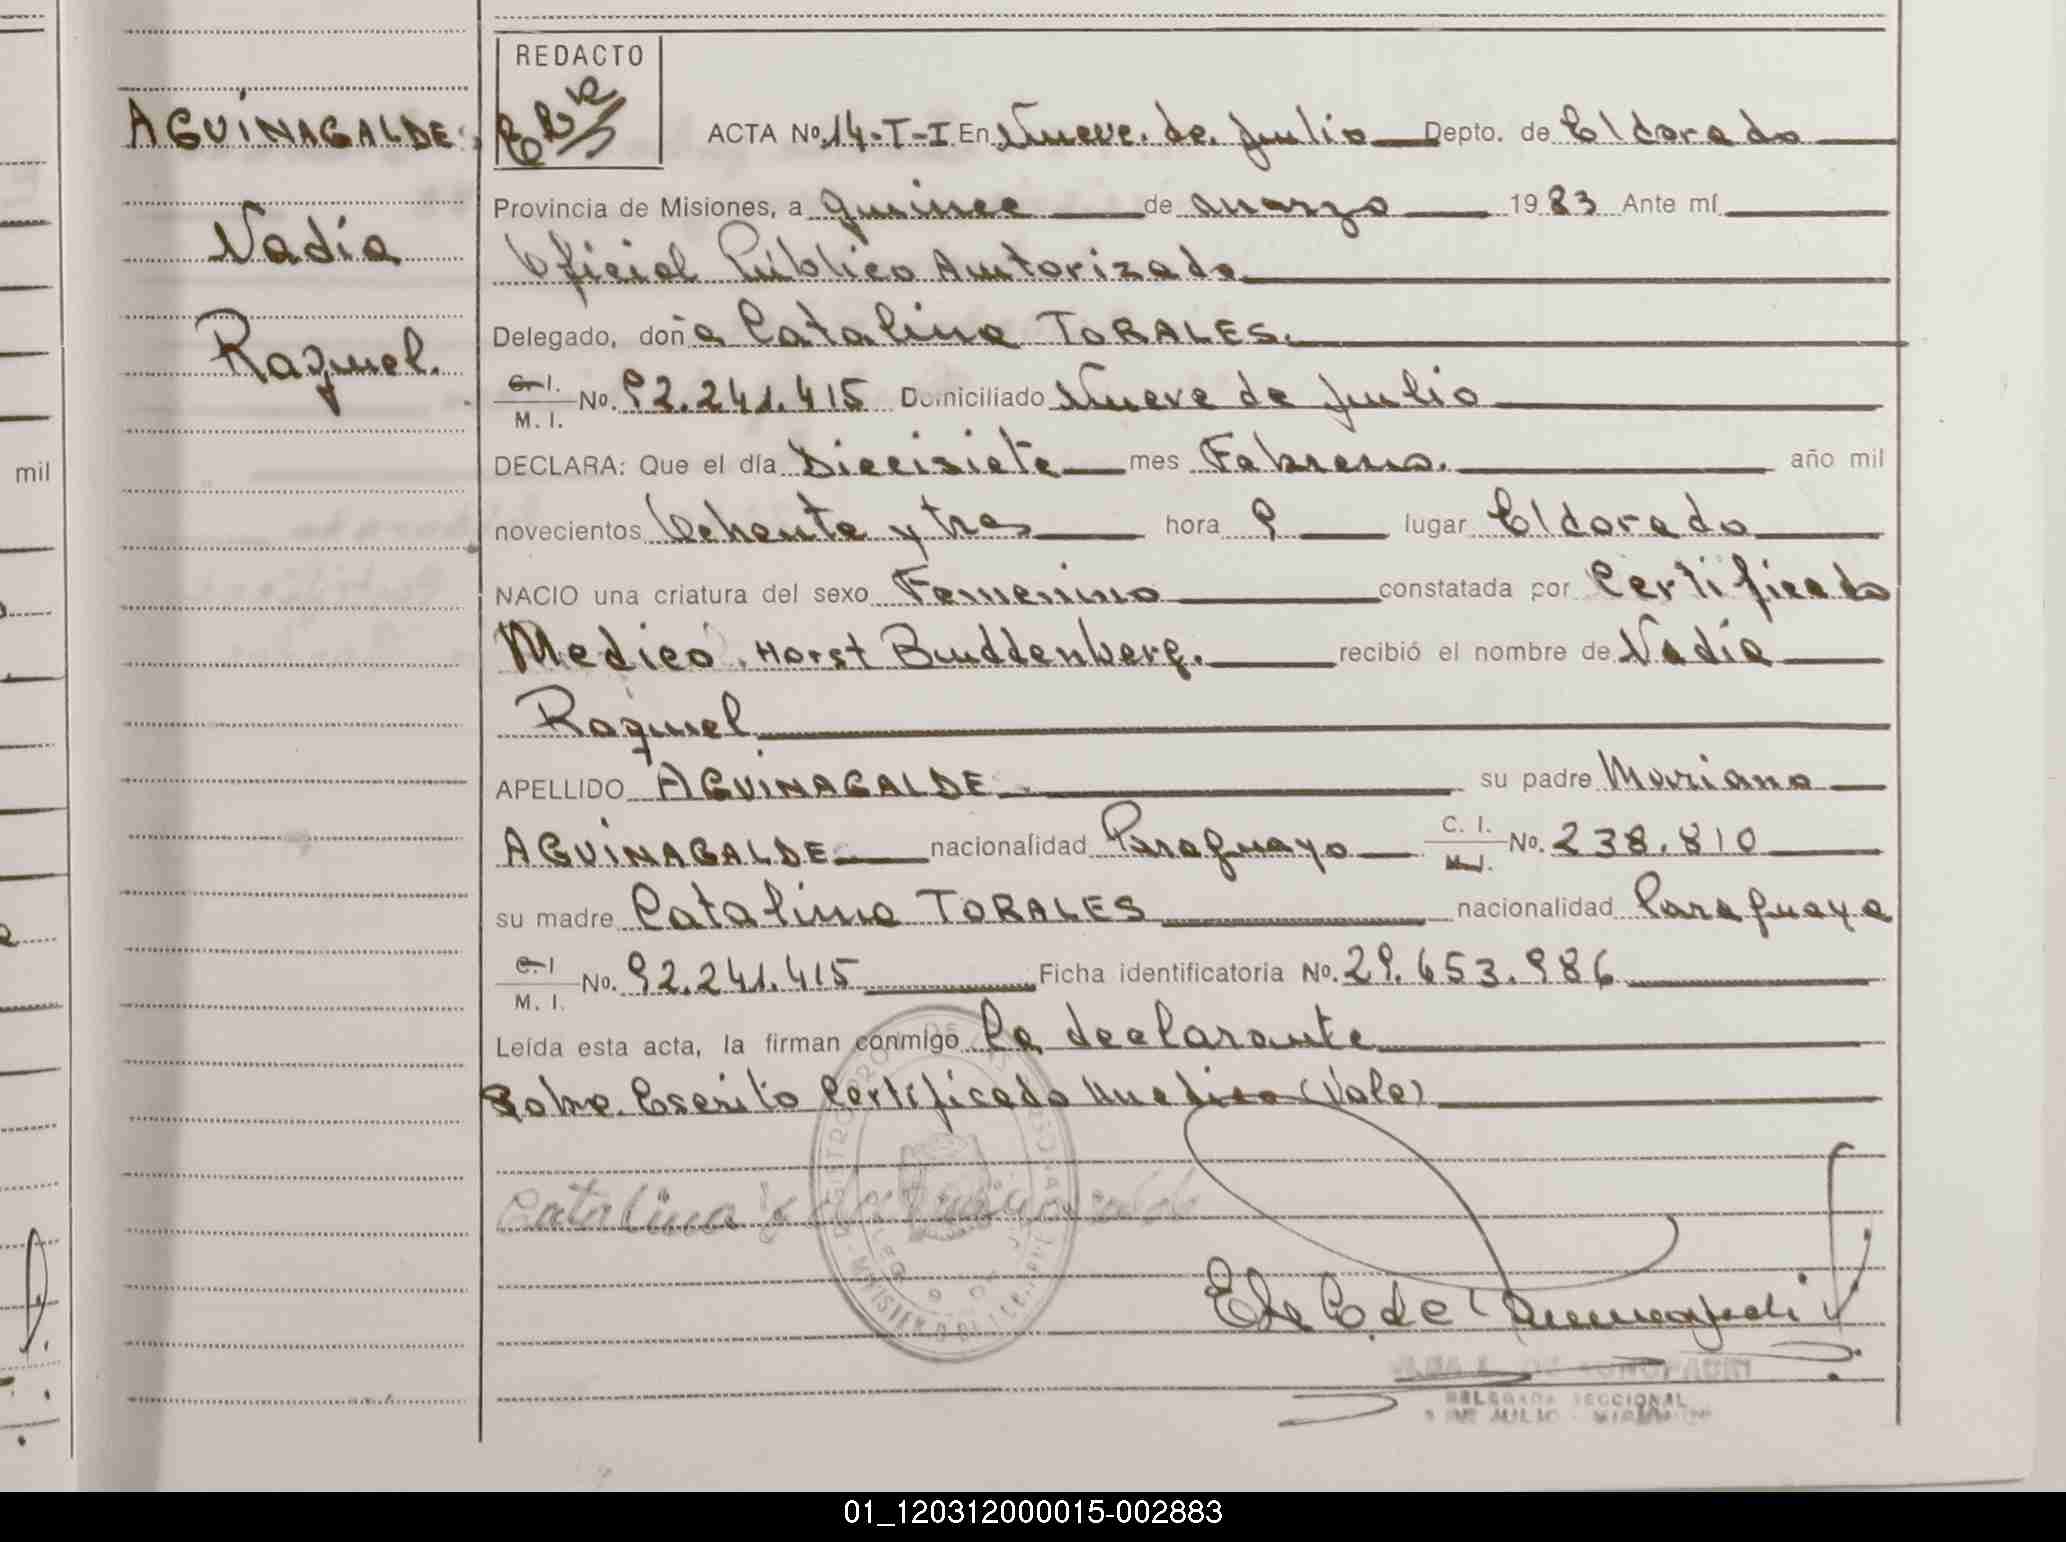 REDACTO
AGUINAGALDE
ACTA No. 14-T-I En Nueve de Julio Depto. de Eldorado
Provincia de Misiones, a quince de marzo 1983 Ante mí
Nadia
Oficial Público Autorizado
Raquel.
Delegado, doña Catalina TORALES.
C. I.
M. I. No. 92.241.415 Domiciliado Nueve de Julio
DECLARA: Que el día Diecisiete mes Febrero. año mil
novecientos Ochenta y tres hora 9 lugar Eldorado
NACIO una criatura del sexo Femenino constatada por Certificado
Medico. Horst Buddenberg. recibió el nombre de Nadia
Raquel
APELLIDO AGUINAGALDE su padre Mariano
AGUINAGALDE nacionalidad Paraguayo C. I. No. 238.810
M. I.
su madre Catalina TORALES nacionalidad Paraguaya
C. I
M. I. No. 92.241.415 Ficha identificatoria No. 29.653.986
Leída esta acta, la firman conmigo la declarante
Sobre Escrito Certificado Medico (Vale)
Catalina
DELEGADA SECCIONAL
9 DE JULIO - MISIONES
mil
01_120312000015-002883